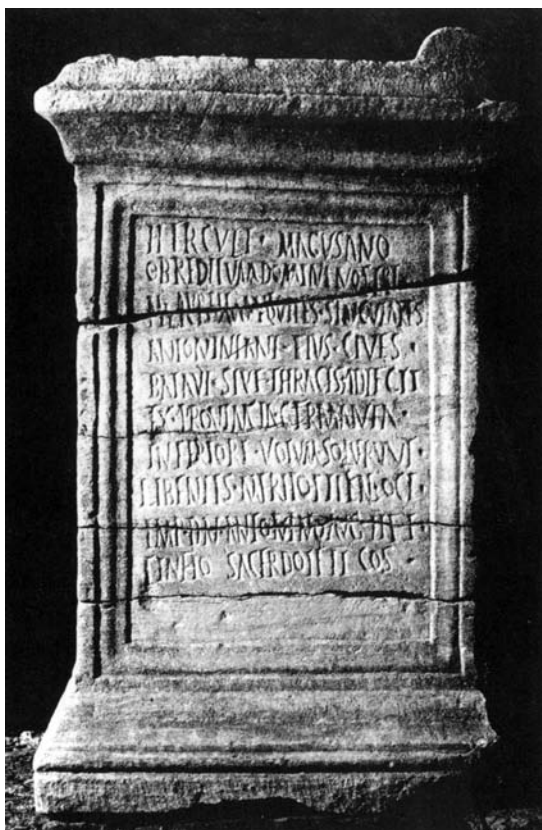 HERCVLI · MAGVSANO
OB REDITVM DOMINI NOSTRI
EQVITES · SINGVLARES
ANTONINIANI · EIVS · CIVES ·
BATAVI · SIVE · THRACES ADLECTI
EX · PROVINCIA GERMANIA ·
INFERIORI · VOTVM · SOLVERVNT ·
LIBENTES · MERITO OCT ·
IMP D N ANTONINO AVG II ET ·
TINEIO SACERDOTE II COS ·